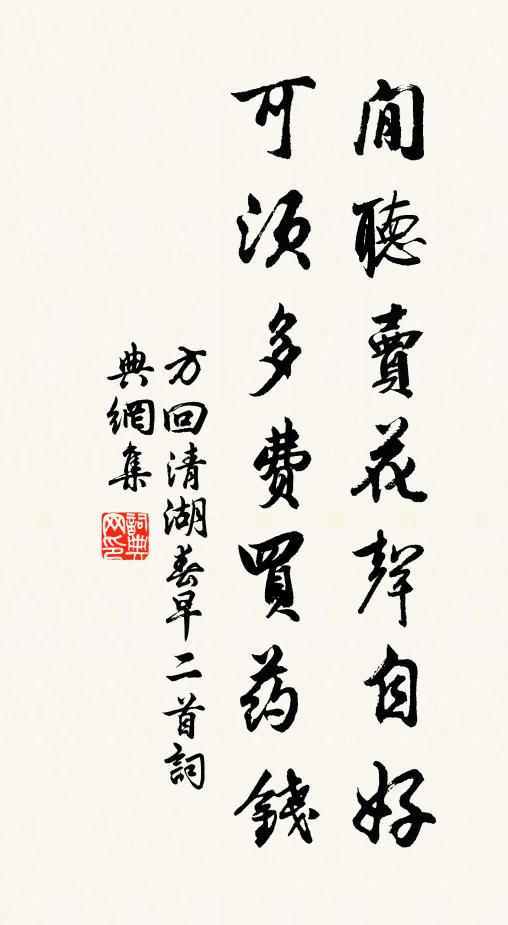 閒聽賣花聲自好
可須多費買药錢
方回清湖春早二首詞
典網集
詞典网印